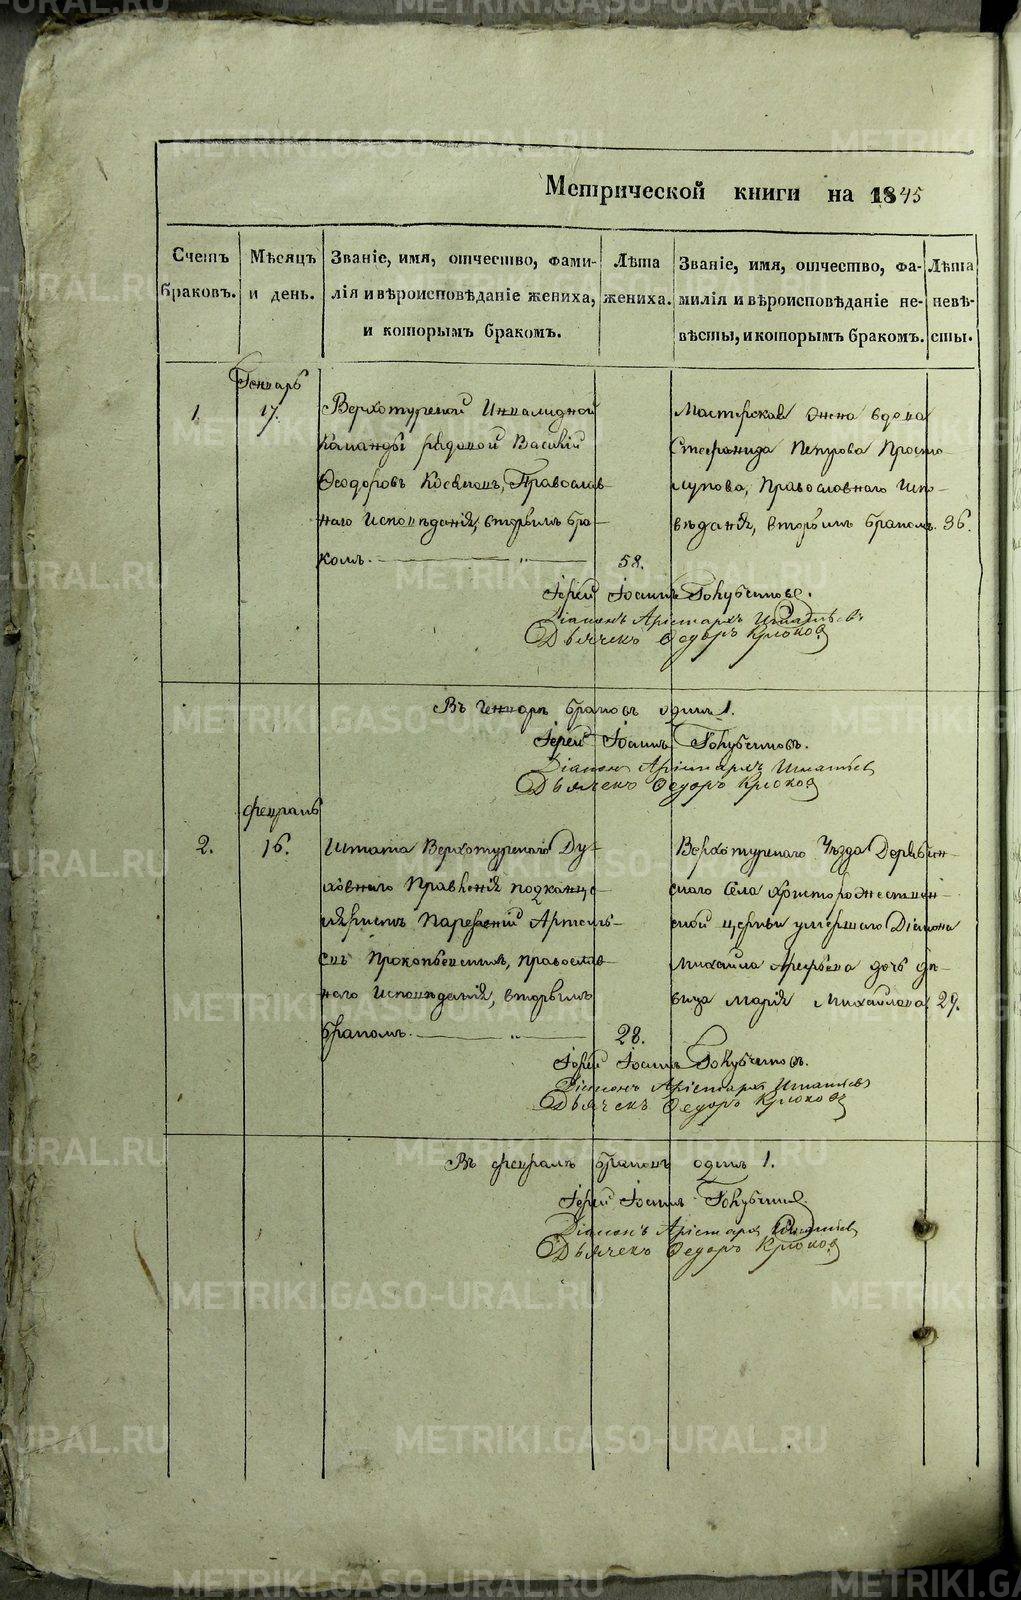 Метрической книги на 1845
Счетъ браковъ.
Мѣсяцъ и день.
Званіе, имя, отчество, фами-
лія и вѣроисповѣданіе жениха,
и которымъ бракомъ.
Лѣта жениха.
Званіе, имя, отчество, фа-
милія и вѣроисповѣданіе не-
вѣсты, и которымъ бракомъ.
Лѣта невѣ-
сты.
Генварь
1. 17.
Верхотурской Инвалидной
Команды рядовой Василій
Ѳеодоровъ Православ-
наго Исповѣданія, вторымъ бра-
комъ. 58.
Мастерская жена вдова
Стефанида Петрова Просто-
лупова, Православнаго Испо-
вѣданія, вторымъ бракомъ. 36.
Іерей Іоаннъ
Діаконъ Аристархъ Игнатьевъ
Дьячекъ Ѳедоръ Крюковъ
Въ Генварѣ браковъ одинъ 1.
Іерей Іоаннъ
Діаконъ Аристархъ Игнатьев
Дьячекъ Ѳедоръ Крюков
Февраль
2. 16.
Штата Верхотурскаго Ду-
ховнаго Правленія подканце-
ляристъ Арсень-
евъ Прокопьевичъ, православ-
наго Исповѣданія, вторымъ
бракомъ. 28.
Верхотурскаго Уѣзда Дерябин-
скаго Села Христорождествен-
ской церкви умершаго Діакона
Михайла Арефьева дочь дѣ-
вица Марія Михайлова 29.
Іерей Іоаннъ
Діаконъ Аристархъ Игнатьевъ
Дьячекъ Ѳедоръ Крюковъ
Въ февралѣ браковъ одинъ 1.
Іерей Іоаннъ
Діаконъ Аристархъ Игнатьев
Дьячекъ Ѳедоръ Крюков
METRIKI.GASO-URAL.RU